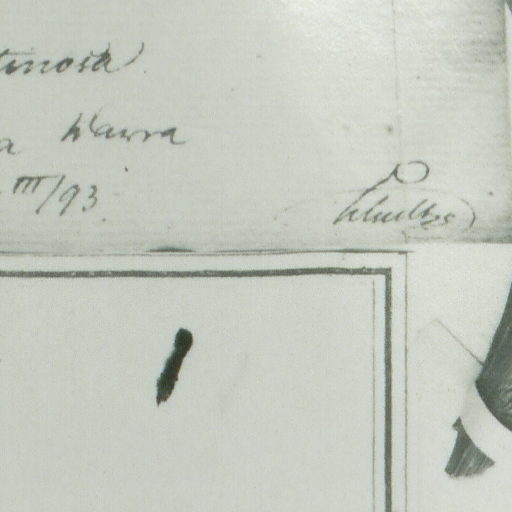 tinosa
a Wawra
III/93.
Schultze